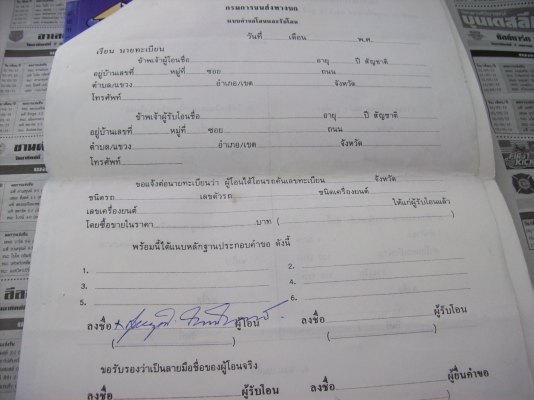 กรมการขนส่งทางบก
แบบคำขอโอนและรับโอน
วันที่ เดือน พ.ศ.
เรียน นายทะเบียน
ข้าพเจ้าผู้โอนชื่อ อายุ ปี สัญชาติ
อยู่บ้านเลขที่ หมู่ที่ ซอย ถนน
ตำบล/แขวง อำเภอ/เขต จังหวัด
โทรศัพท์
ข้าพเจ้าผู้รับโอนชื่อ อายุ ปี สัญชาติ
อยู่บ้านเลขที่ หมู่ที่ ซอย ถนน
ตำบล/แขวง อำเภอ/เขต จังหวัด
โทรศัพท์
ขอแจ้งต่อนายทะเบียนว่า ผู้โอนได้โอนรถคันเลขทะเบียน จังหวัด
ชนิดรถ เลขตัวรถ ชนิดเครื่องยนต์
เลขเครื่องยนต์ ให้แก่ผู้รับโอนแล้ว
โดยซื้อขายในราคา บาท ( )
พร้อมนี้ได้แนบหลักฐานประกอบคำขอ ดังนี้
1. 2.
3. 4.
5. 6.
ลงชื่อ ผู้โอน ลงชื่อ ผู้รับโอน
( ) ( )
ขอรับรองว่าเป็นลายมือชื่อของผู้โอนจริง
ลงชื่อ ผู้รับโอน ลงชื่อ ผู้ยื่นคำขอ